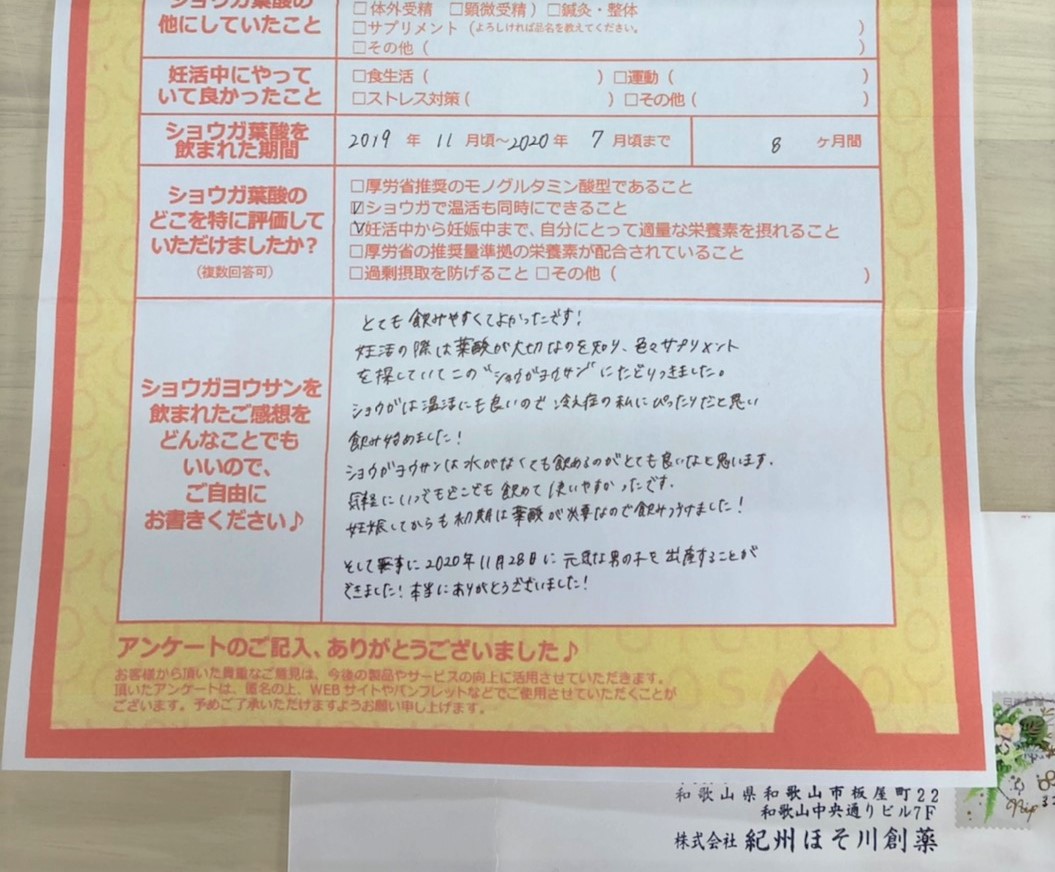 ショウガ葉酸の
他にしていたこと
□体外受精 □顕微受精) □鍼灸・整体
□サプリメント (よろしければ品名を教えてください。 )
□その他( )
妊活中にやって
いて良かったこと
□食生活( ) □運動( )
□ストレス対策( ) □その他( )
ショウガ葉酸を
飲まれた期間
2019 年 11 月頃~2020年 7 月頃まで 8 ヶ月間
ショウガ葉酸の
どこを特に評価して
いただけましたか?
(複数回答可)
□厚労省推奨のモノグルタミン酸型であること
☑ショウガで温活も同時にできること
☑妊活中から妊娠中まで、自分にとって適量な栄養素を摂れること
□厚労省の推奨量準拠の栄養素が配合されていること
□過剰摂取を防げること □その他( )
ショウガヨウサンを
飲まれたご感想を
どんなことでも
いいので、
ご自由に
お書きください♪
とても飲みやすくてよかったです!
妊活の際は葉酸が大切なのを知り、色々サプリメント
を探していてこの“ショウガヨウサン”にたどりつきました。
ショウガは温活にも良いので冷え症の私にぴったりだと思い
飲み始めました!
ショウガヨウサンは水がなくても飲めるのがとても良いなと思います。
気軽にいつでもどこでも飲めて使いやすかったです。
妊娠してからも初期は葉酸が必要なので飲みつづけました!
そして無事に2020年11月28日に元気な男の子を出産することが
できました!本当にありがとうございました!
アンケートのご記入、ありがとうございました♪
お客様から頂いた貴重なご意見は、今後の製品やサービスの向上に活用させていただきます。
頂いたアンケートは、匿名の上、WEBサイトやパンフレットなどでご使用させていただくことが
ございます。予めご了承いただけますようお願い申し上げます。
和歌山県和歌山市板屋町22
和歌山中央通りビル7F
株式会社 紀州ほそ川創薬